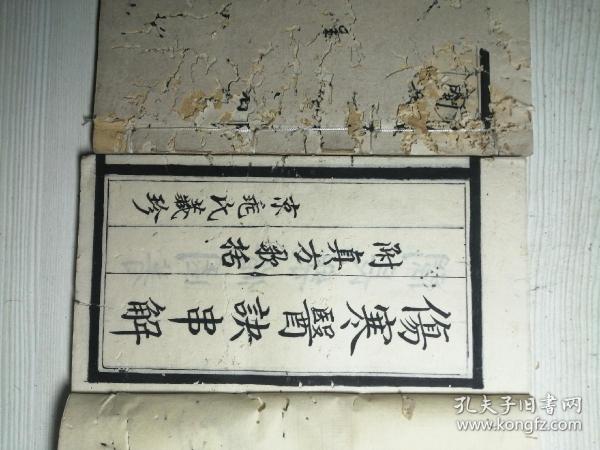 傷寒醫訣串解
附真方歌括
京氏藏珍
孔夫子旧书网
www.kongfz.com